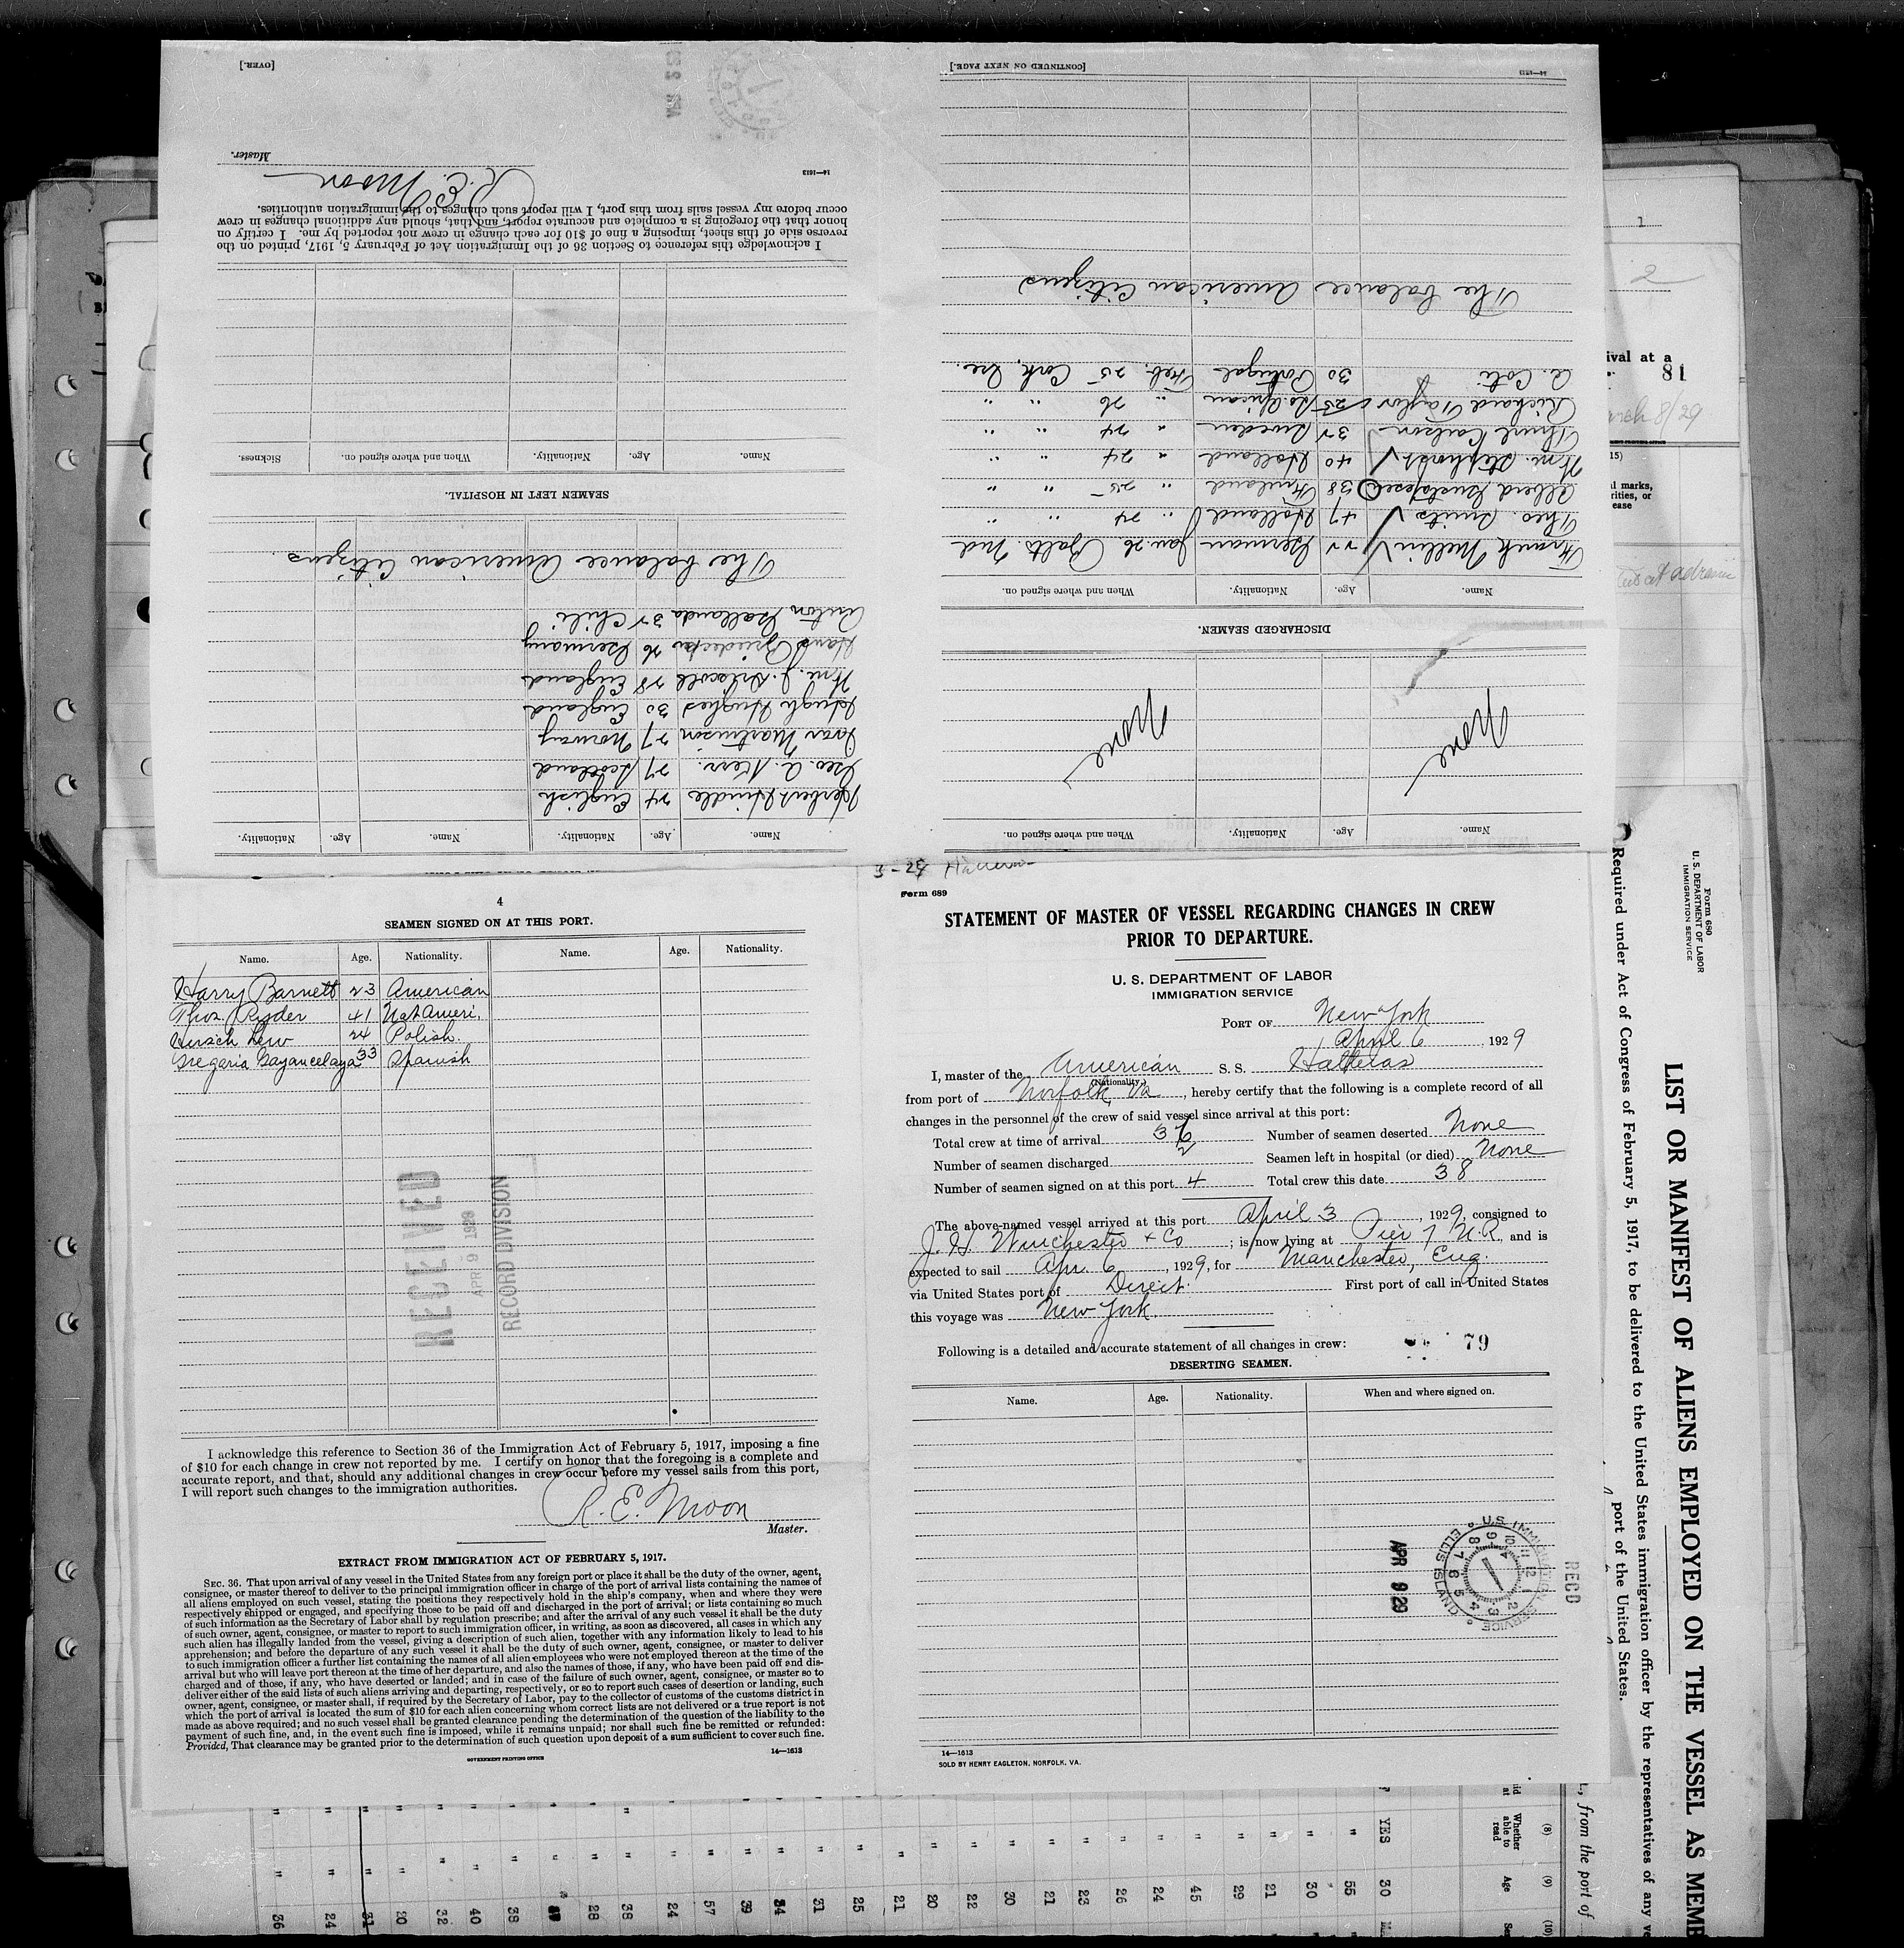 [OVER.
APR 2 29
Master.
R. E. Moon
14—1613
I acknowledge this reference to Section 36 of the Immigration Act of February 5, 1917, printed on the
reverse side of this sheet, imposing a fine of $10 for each change in crew not reported by me. I certify on
honor that the foregoing is a complete and accurate report, and that, should any additional changes in crew
occur before my vessel sails from this port, I will report such changes to the immigration authorities.
Name. Age. Nationality. When and where signed on. Sickness.
SEAMEN LEFT IN HOSPITAL.
Name. Age. Nationality. Name. Age. Nationality.
Herbert Hindle 24 English
Geo. A. Kerr 27 Scotland
Ivar Martinson 27 Norway
Hugh Hughes 30 England
Wm. J. Driscoll 28 England
Hans 26 Germany
Anton 32 Chili
The balance American Citizens.
[CONTINUED ON NEXT PAGE.]
14—1613
Name. Age. Nationality. When and where signed on.
None None
DISCHARGED SEAMEN.
Name. Age. Nationality. When and where signed on.
Frank 22 German Jan. 26 Balto. Md
Theo. Smits 47 Holland " 24 " "
Albert 38 Finland " 25 " "
Wm. 40 Holland " 24 " "
Thure Carlson 32 Sweden " 24 " "
Richard Taylor 25 So. African " 26 " "
A. Coti 30 Portugal Feb. 25 Cork, Ire.
The balance American Citizens
4
SEAMEN SIGNED ON AT THIS PORT.
Name. Age. Nationality. Name. Age. Nationality.
Harry Barnett 23 American
Thos. Ryder 41 Nat Ameri.
Hirsch Lew 24 Polish.
Gregaria Gayancelaya 33 Spanish
RECEIVED
APR 9 1929
RECORD DIVISION
I acknowledge this reference to Section 36 of the Immigration Act of February 5, 1917, imposing a fine
of $10 for each change in crew not reported by me. I certify on honor that the foregoing is a complete and
accurate report, and that, should any additional changes in crew occur before my vessel sails from this port,
I will report such changes to the immigration authorities.
R. E. Moon
Master.
EXTRACT FROM IMMIGRATION ACT OF FEBRUARY 5, 1917.
SEC. 36. That upon arrival of any vessel in the United States from any foreign port or place it shall be the duty of the owner, agent,
consignee, or master thereof to deliver to the principal immigration officer in charge of the port of arrival lists containing the names of
all aliens employed on such vessel, stating the positions they respectively hold in the ship's company, when and where they were
respectively shipped or engaged, and specifying those to be paid off and discharged in the port of arrival; or lists containing so much
of such information as the Secretary of Labor shall by regulation prescribe; and after the arrival of any such vessel it shall be the duty
of such owner, agent, consignee, or master to report to such immigration officer, in writing, as soon as discovered, all cases in which any
such alien has illegally landed from the vessel, giving a description of such alien, together with any information likely to lead to his
apprehension; and before the departure of any such vessel it shall be the duty of such owner, agent, consignee, or master to deliver
to such immigration officer a further list containing the names of all alien employees who were not employed thereon at the time of the
arrival but who will leave port thereon at the time of her departure, and also the names of those, if any, who have been paid off and dis-
charged and of those, if any, who have deserted or landed; and in case of the failure of such owner, agent, consignee, or master so to
deliver either of the said lists of such aliens arriving and departing, respectively, or so to report such cases of desertion or landing, such
owner, agent, consignee, or master shall, if required by the Secretary of Labor, pay to the collector of customs of the customs district in
which the port of arrival is located the sum of $10 for each alien concerning whom correct lists are not delivered or a true report is not
made as above required; and no such vessel shall be granted clearance pending the determination of the question of the liability to the
payment of such fine, and, in the event such fine is imposed, while it remains unpaid; nor shall such fine be remitted or refunded:
Provided, That clearance may be granted prior to the determination of such question upon deposit of a sum sufficient to cover such fine.
GOVERNMENT PRINTING OFFICE
14—1613
Form 689
STATEMENT OF MASTER OF VESSEL REGARDING CHANGES IN CREW
PRIOR TO DEPARTURE.
U. S. DEPARTMENT OF LABOR
IMMIGRATION SERVICE
PORT OF New York
April 6, 1929
I, master of the American S. S. Hatteras
(Nationality.)
from port of Norfolk, Va, hereby certify that the following is a complete record of all
changes in the personnel of the crew of said vessel since arrival at this port:
Total crew at time of arrival 36 Number of seamen deserted None
Number of seamen discharged 2 Seamen left in hospital (or died) None
Number of seamen signed on at this port 4 Total crew this date 38
The above-named vessel arrived at this port April 3, 1929, consigned to
J. H. Winchester & Co; is now lying at Pier 7 N.R., and is
expected to sail Apr. 6, 1929, for Manchester, Eng.
via United States port of Direct. First port of call in United States
this voyage was New York.
Following is a detailed and accurate statement of all changes in crew: 79
DESERTING SEAMEN.
Name. Age. Nationality. When and where signed on.
APR 9 29
U.S. IMMIGRATION SERVICE
ELLIS ISLAND
RECD
14—1613
SOLD BY HENRY EAGLETON, NORFOLK, VA.
1
2
ival at a
81
8/29
15)
l marks,
rities, or
ease
Form 680
U. S. DEPARTMENT OF LABOR
IMMIGRATION SERVICE
LIST OR MANIFEST OF ALIENS EMPLOYED ON THE VESSEL AS MEMB
Required under Act of Congress of February 5, 1917, to be delivered to the United States immigration officer by the representatives of any ve
port of the United States.
, from the port of
(8) (9) (10)
Whether able to read
Age
YES
30 55 30 21 29 45 24 26 23 21 30 22 20 21 25 31 34 39 57 24 38 28 38 40 32 20 31 24 36